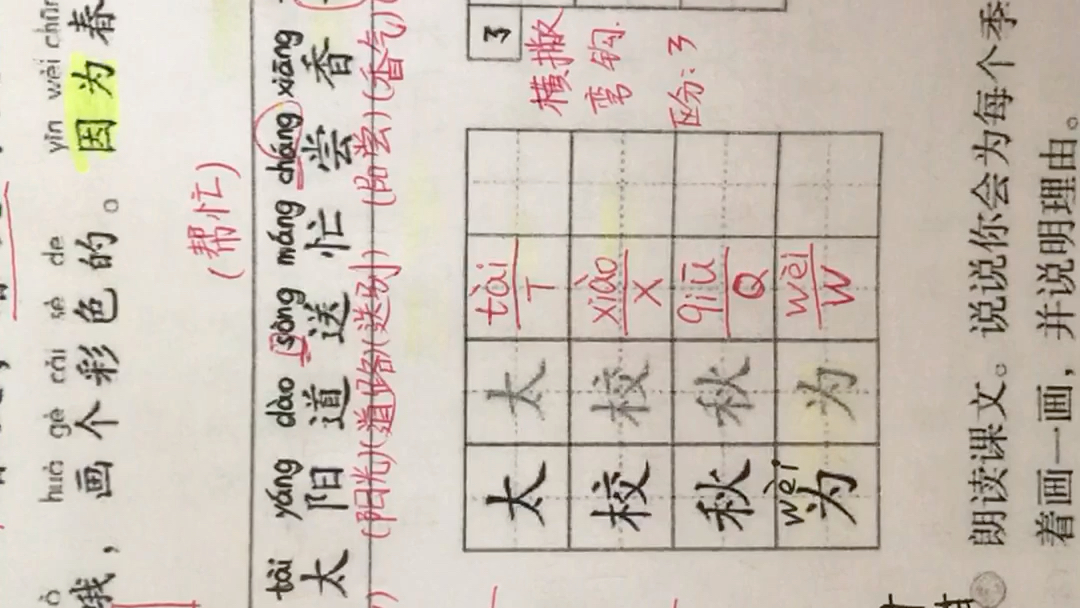 huà gè cǎi sè de yīn wèi chūn
哦，画个彩色的。因为春
(帮忙)
tài yáng dào sòng máng cháng xiāng
太 阳 道 送 忙 尝 香
(阳光)(道路)(送别) (品尝)(香气)
太 太 tài T 3
横撇
校 校 xiào X 弯钩
秋 秋 qiū Q 区分:3
wèi
为 为 wèi W
朗读课文。说说你会为每个季
着画一画，并说明理由。